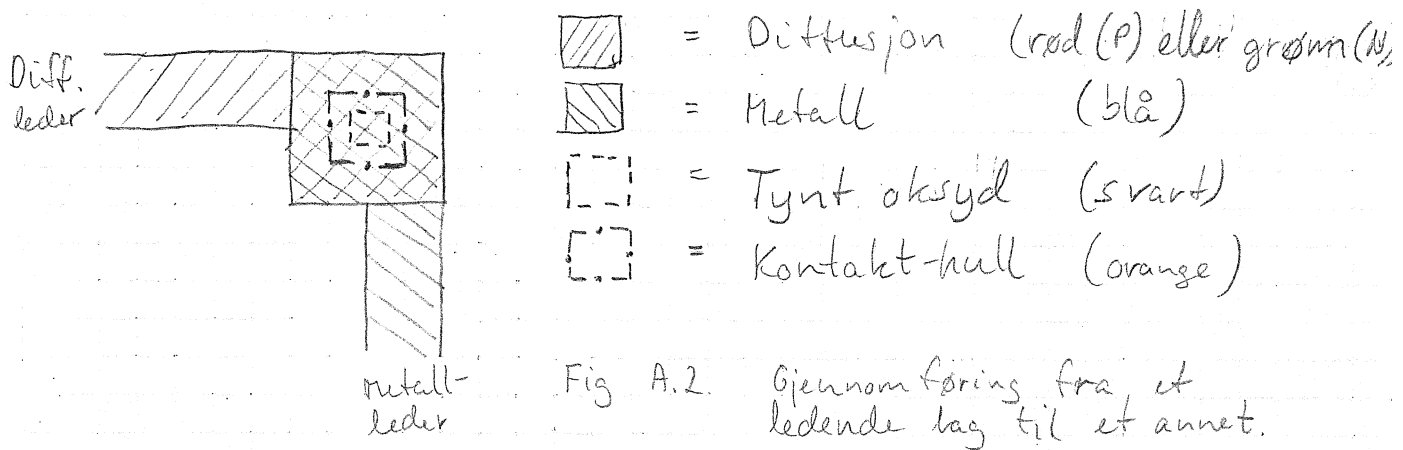 Diff.
leder
= Diffusjon (rød (P) eller grønn (N)
= Metall (blå)
= Tynt oksyd (svart)
= Kontakt-hull (orange)
Metall-
leder
Fig A.2. Gjennomføring fra et
ledende lag til et annet.